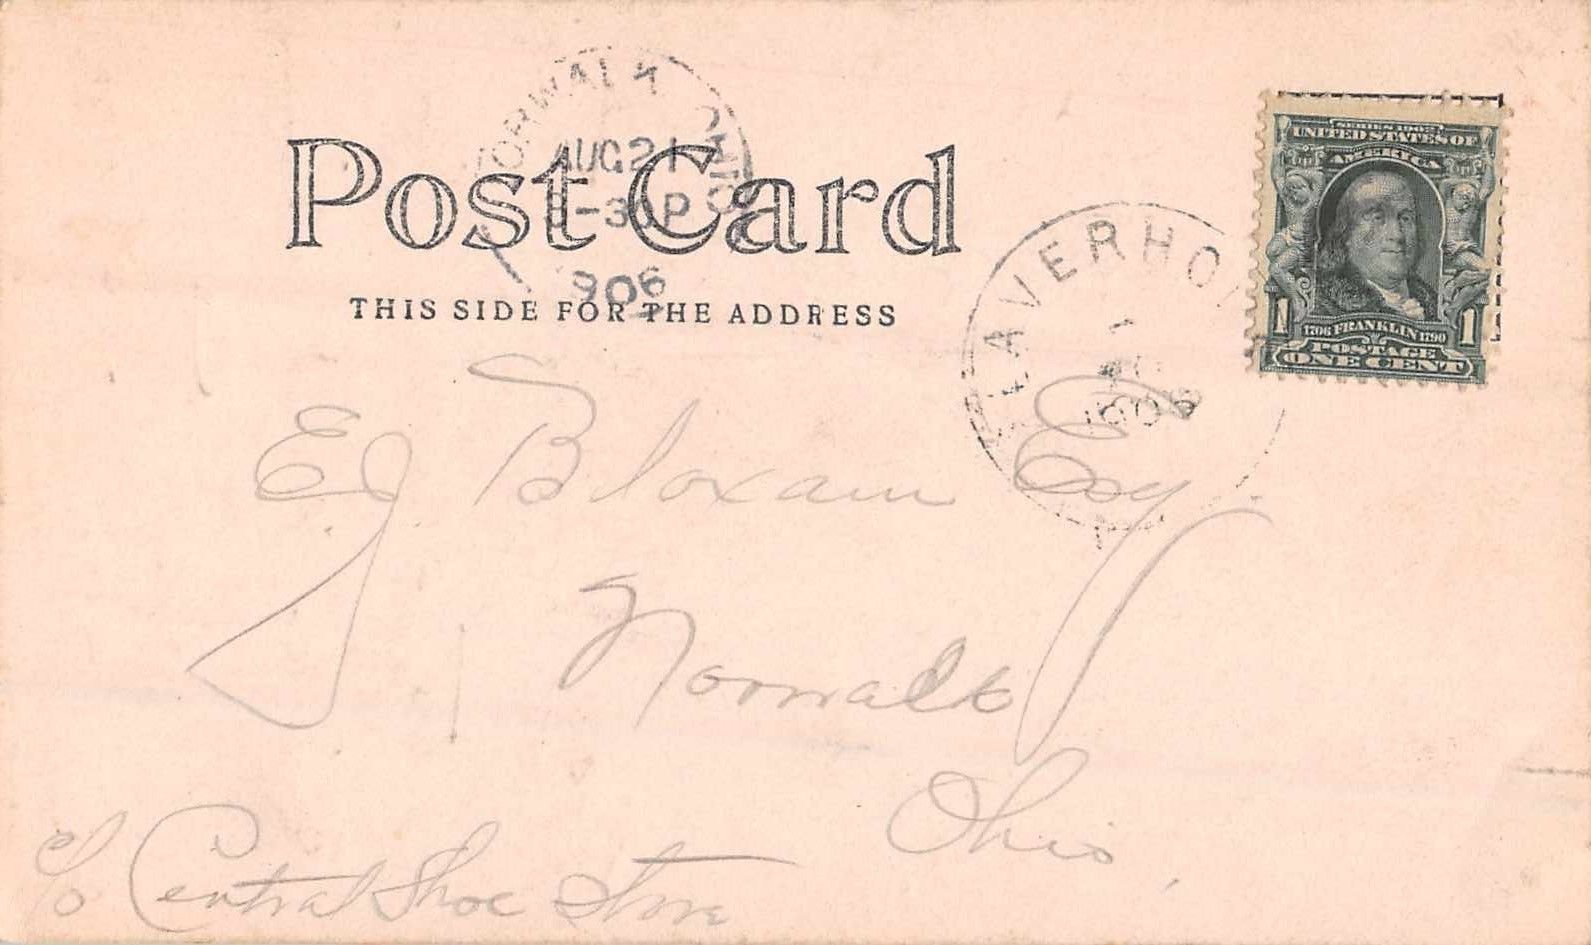 NORWALK OHIO
AUG 21
3-30 P
1906
Post Card
THIS SIDE FOR THE ADDRESS
LAVERHO
1906
SERIES 1902
UNITED STATES OF
AMERICA
1 1706 FRANKLIN 1790 1
POSTAGE
ONE CENT
Ed Bloxam Esq.
Norwalk
Ohio,
c/o Central Shoe Store